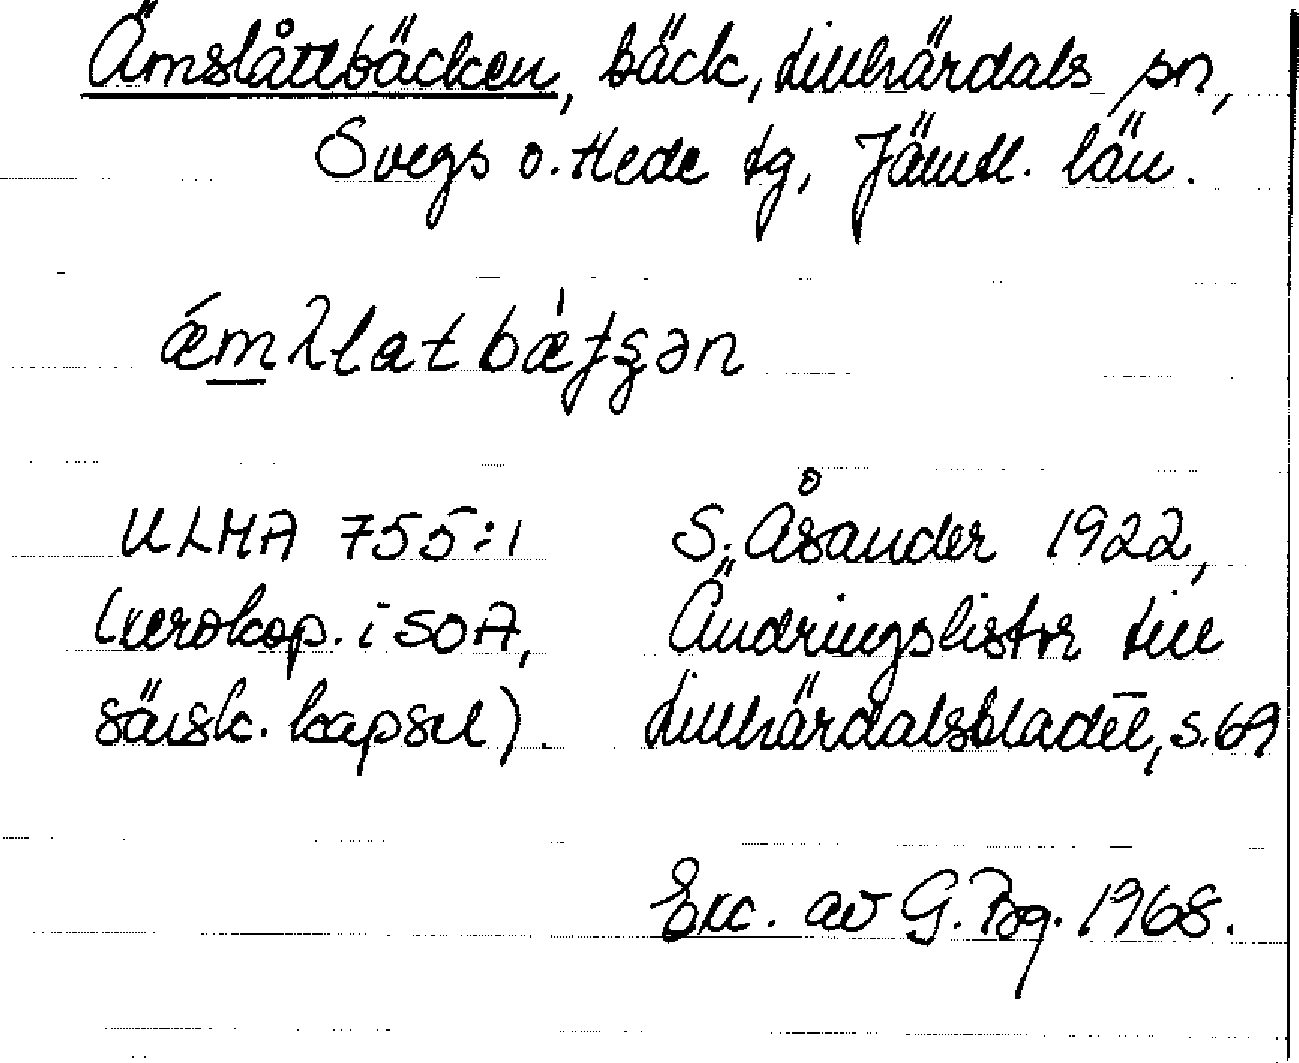 Ämslåttbäcken, bäck, Lillhärdals sn,
Svegs o. Hede tg, Jämtl. län.
ǽmλlatbæ̀fʂən
ULMA 755:1
(xerokop. i SOA,
särsk. kapsel).
S. Åsander 1922,
Ändringslistor till
Lillhärdalsbladet, s. 69
Exc. av G. Bg. 1968.